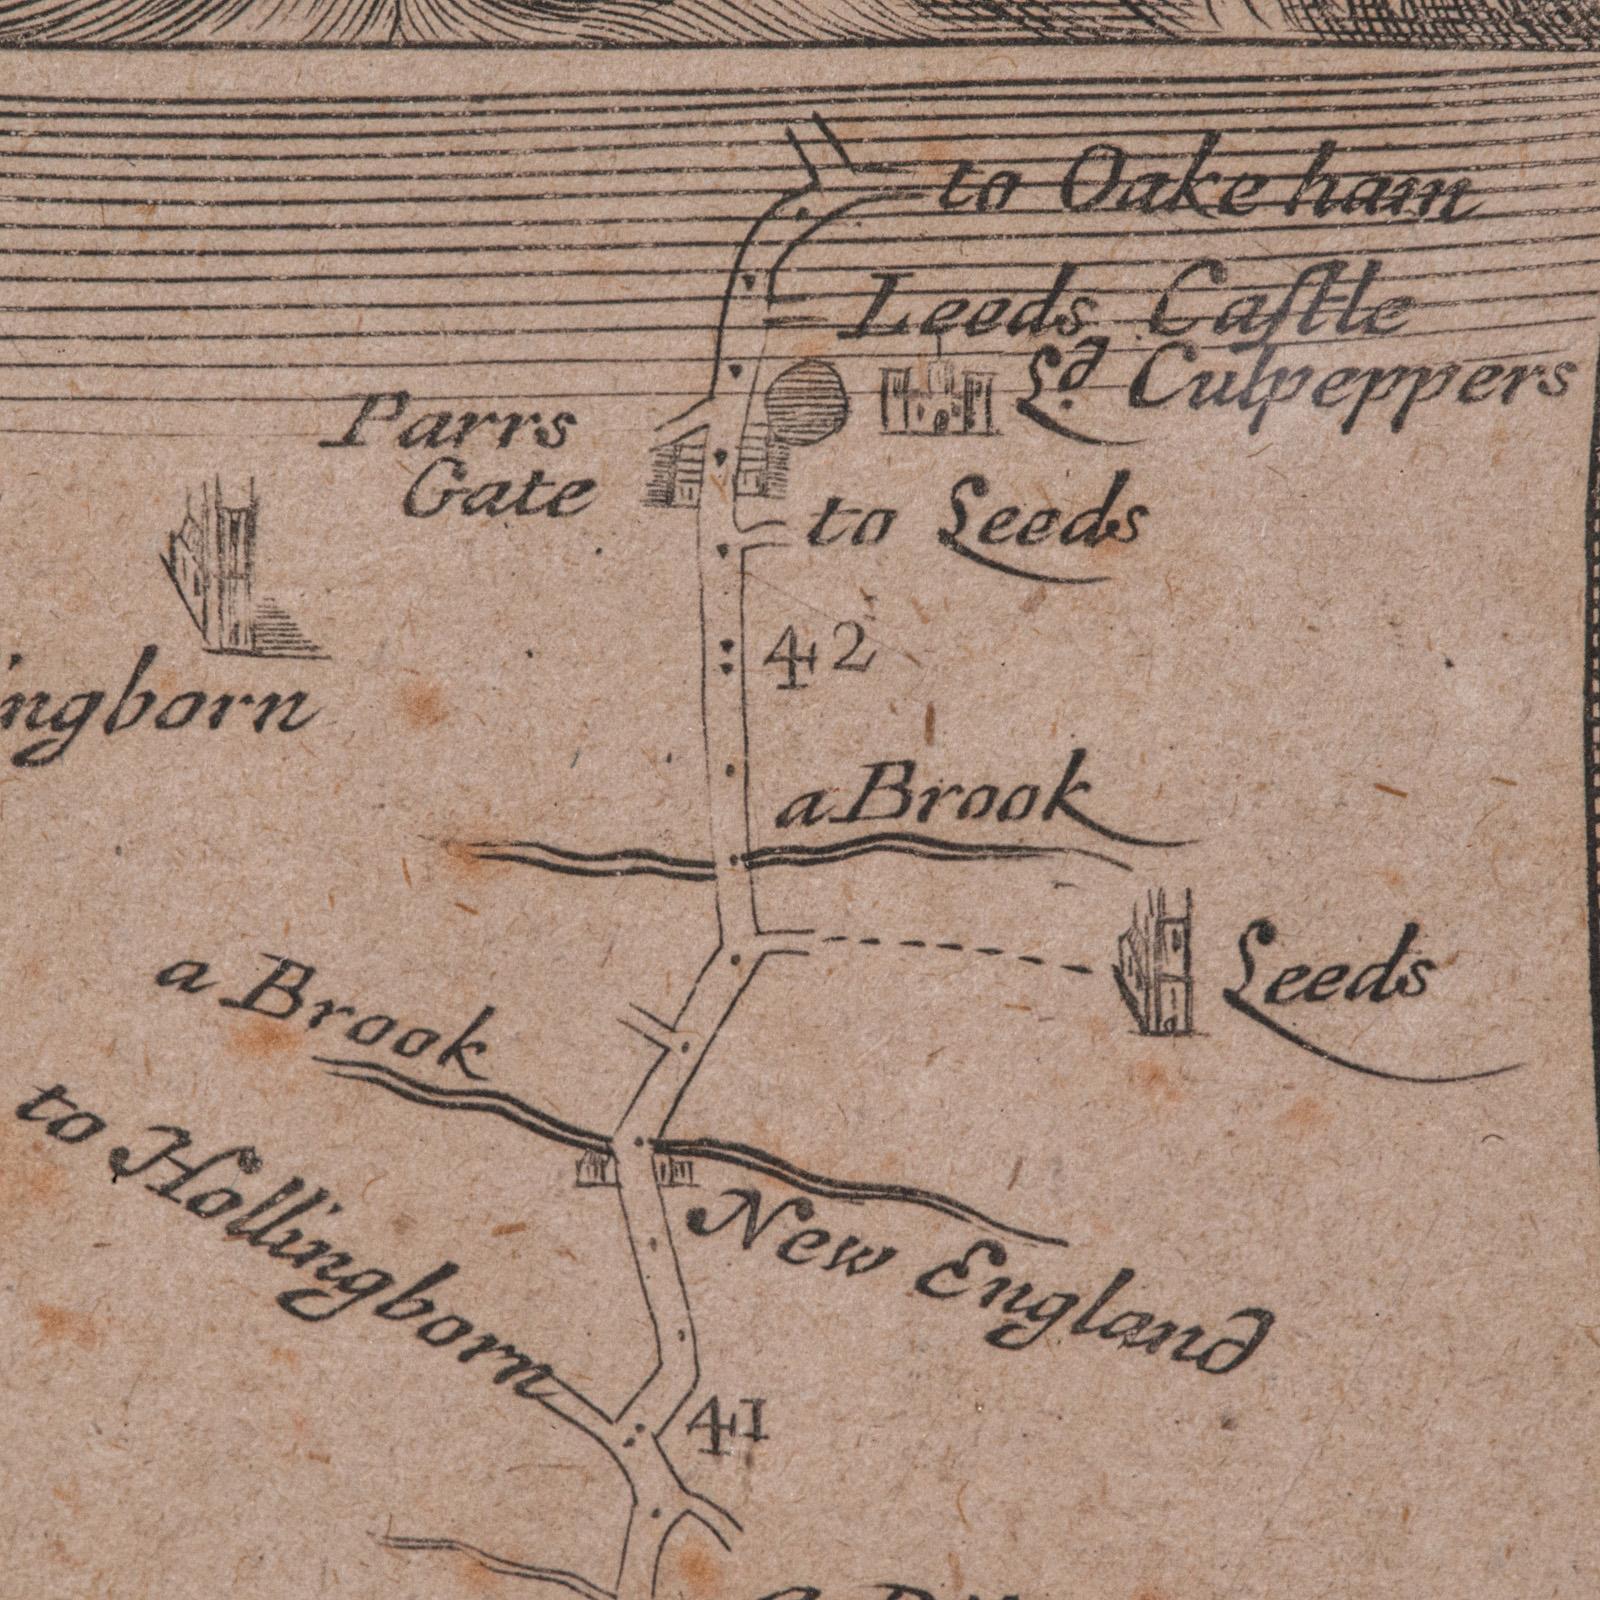 to Oakeham
Leeds Castle
Ld. Culpeppers
Parrs
Gate
to Leeds
42
ingborn
a Brook
Leeds
a Brook
to Hollingborn
New England
41
a